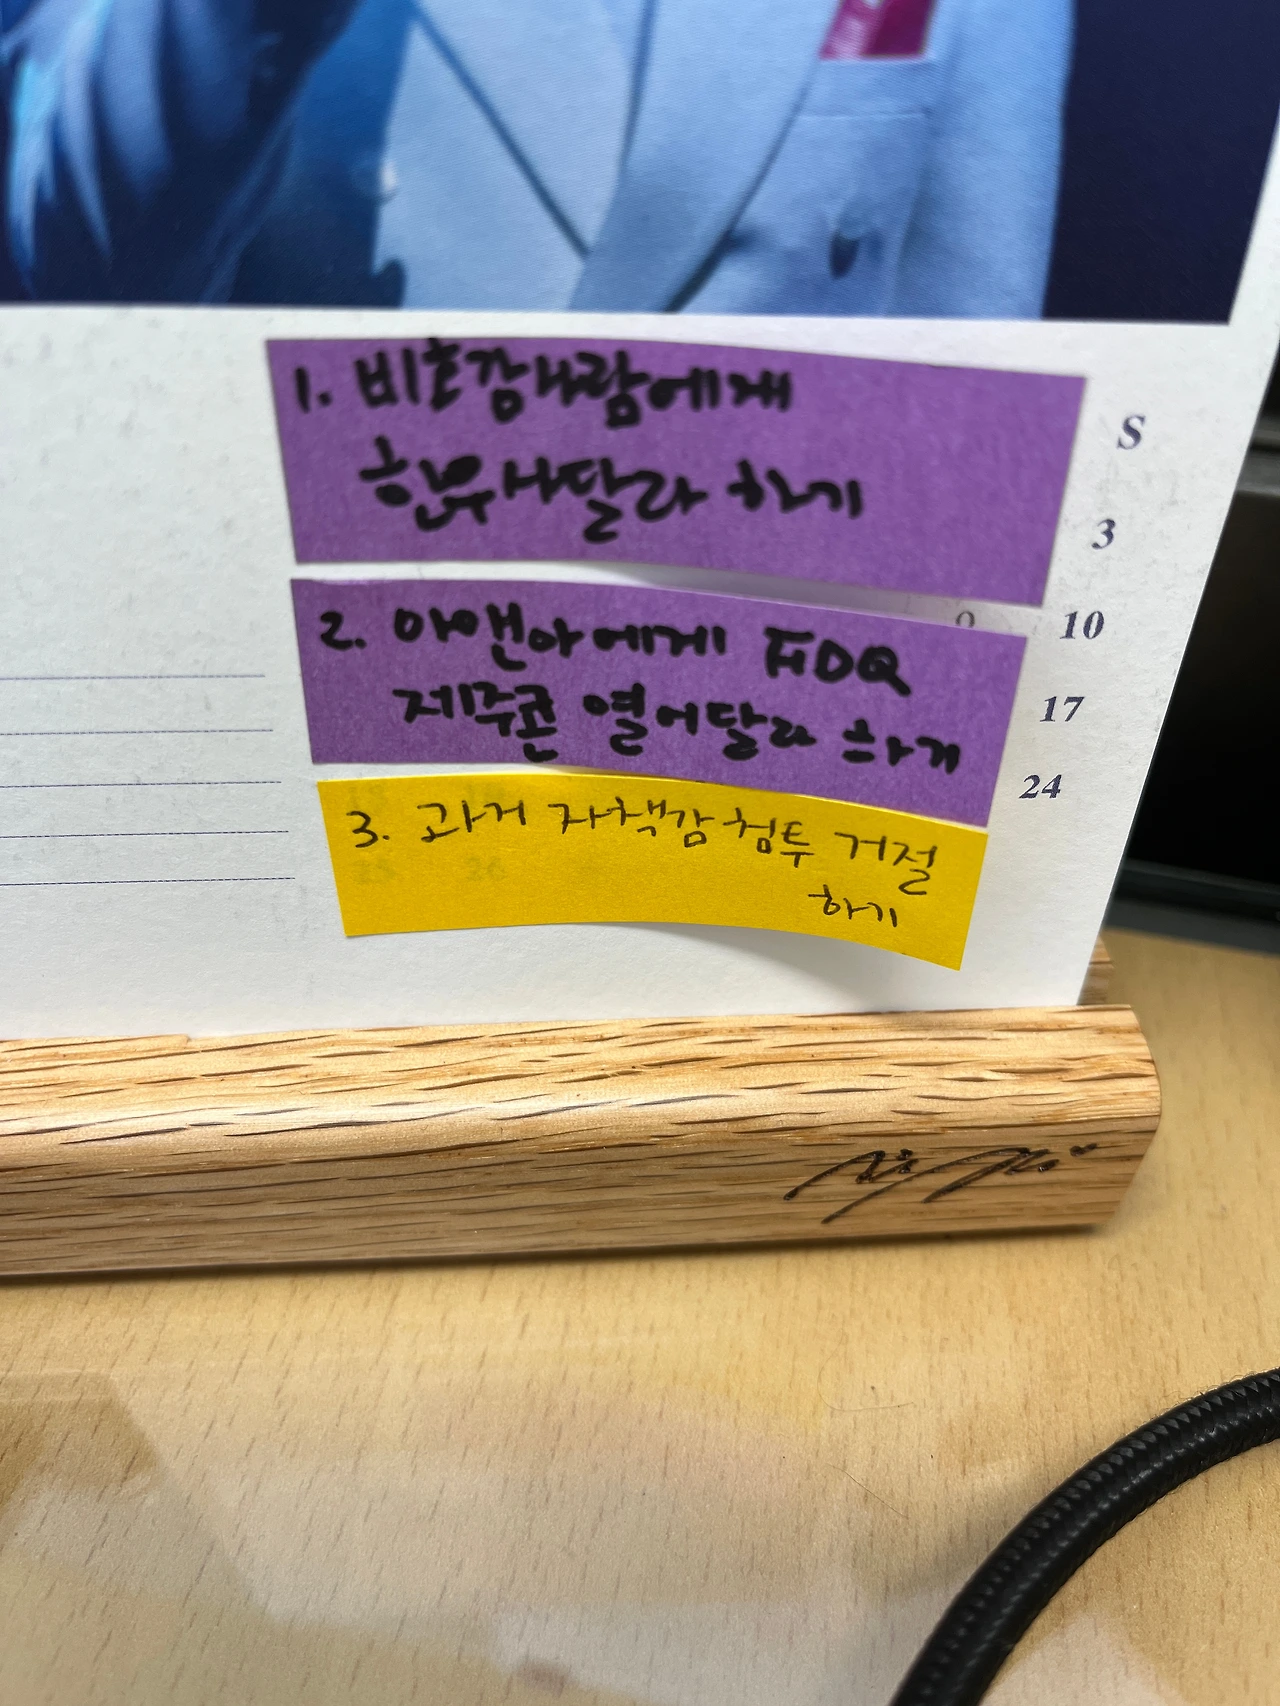 1. 비호감사람에게
한우사달라 하기
S
3
2. 아앤아에게 FDQ
제주콘 열어달라 하기
9
10
17
24
3. 과거 자책감 침투 거절
하기
25
26